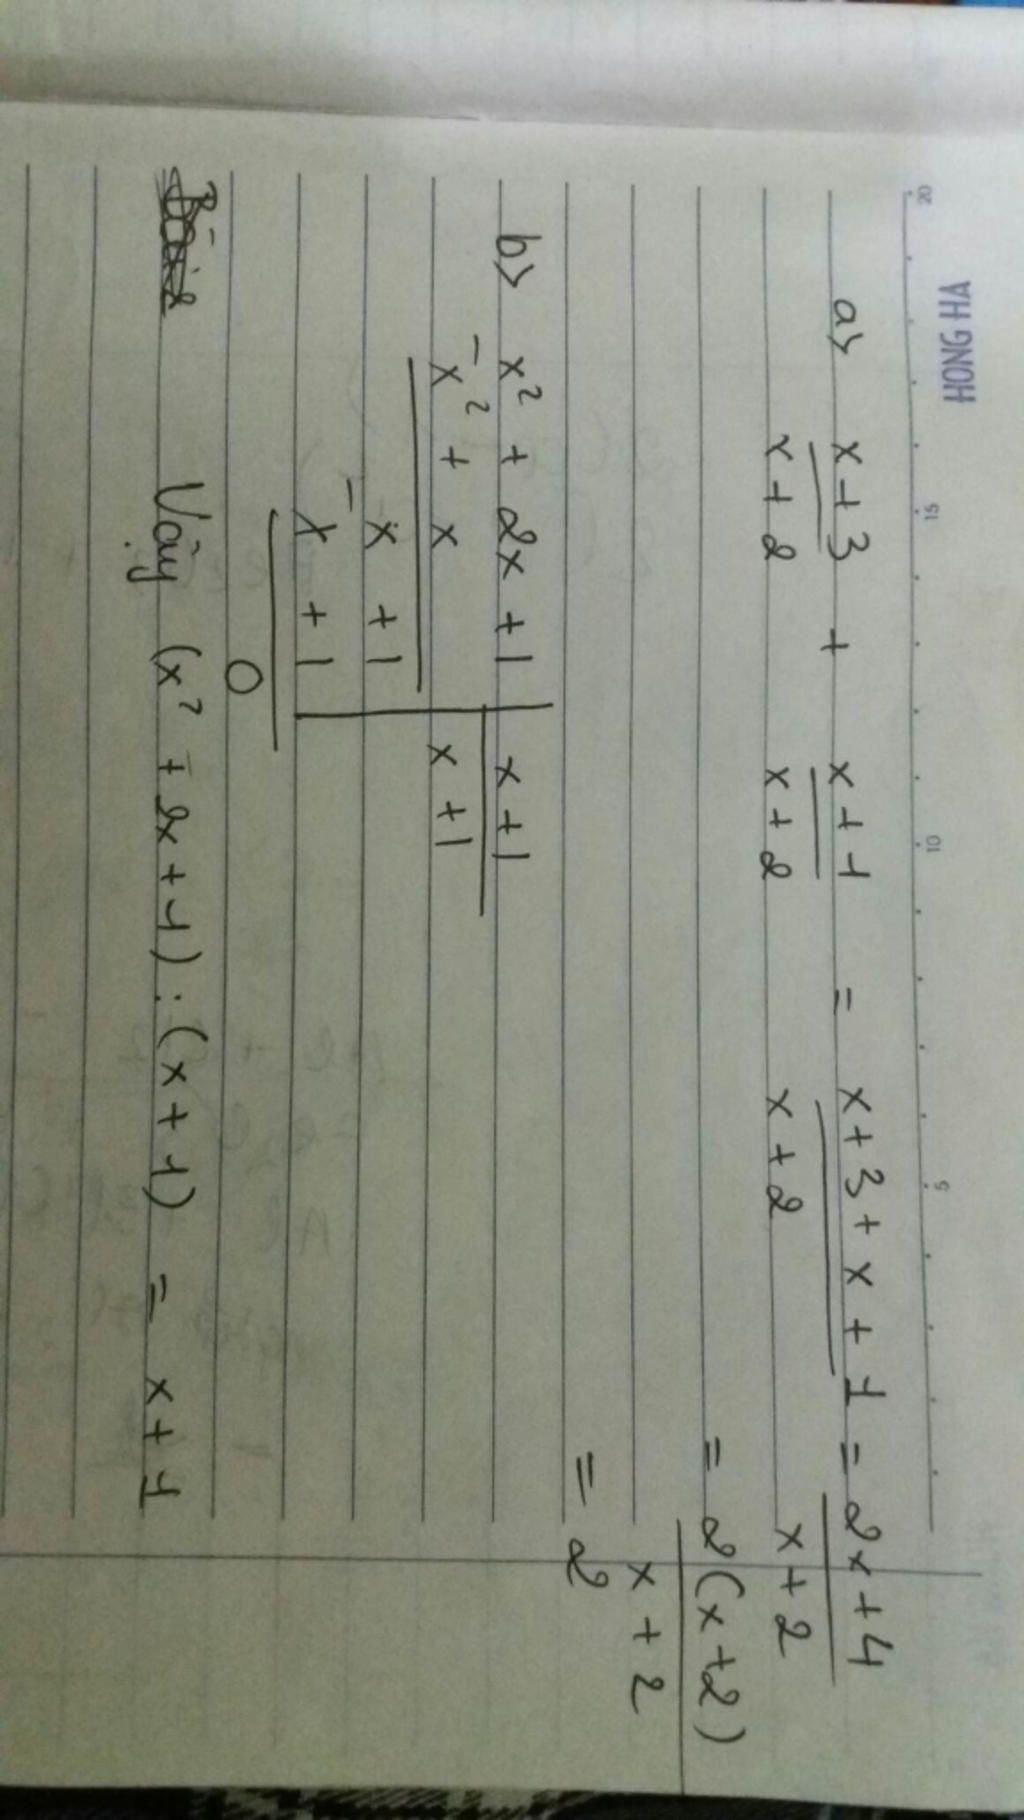 HONG HA
20 15 10 5
a> x+3/x+2 + x+1/x+2 = x+3+x+1/x+2 = 2x+4/x+2
= 2(x+2)/x+2
= 2
b> x² + 2x + 1 | x+1
- x² + x | x+1
x + 1
- x + 1
0
Vậy (x² + 2x + 1) : (x + 1) = x + 1